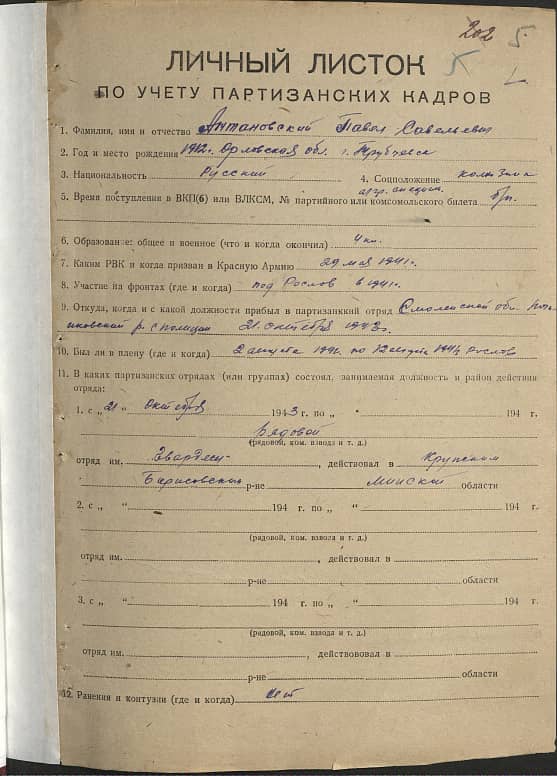 202 5.
ЛИЧНЫЙ ЛИСТОК
ПО УЧЕТУ ПАРТИЗАНСКИХ КАДРОВ
1. Фамилия, имя и отчество Антановский Павел Савельевич
2. Год и место рождения 1912 г. Орловская обл. г. Трубчевск
3. Национальность Русский 4. Соцположение
5. Время поступления в ВКП(б) или ВЛКСМ, № партийного или комсомольского билета б/п.
6. Образование: общее и военное (что и когда окончил) 4 кл.
7. Каким РВК и когда призван в Красную Армию 29 мая 1941 г.
8. Участие на фронтах (где и когда) под Рослов в 1941 г.
9. Откуда, когда и с какой должности прибыл в партизанкий отряд Смоленской обл.
р. с полиции 21 октября 1943 г.
10. Был ли в плену (где и когда) 2 августа 1941 по 12 Рослов
11. В каких партизанских отрядах (или группах) состоял, занимаемая должность и район действия
отряда:
1. с „ 21 “ октября 1943 г. по „ “ 194 г.
Рядовой
(рядовой, ком. взвода и т. д.)
отряд им. , действовал в Крупском
Борисовском р-не Минской области
2. с „ “ 194 г. по „ “ 194 г.
(рядовой, ком. взвода и т. д.)
отряд им. , действовал в
р-не области
3. с „ “ 194 г. по „ “ 194 г.
(рядовой, ком. взвода и т. д.)
отряд им. , действововал в
р-не области
12. Ранения и контузии (где и когда) нет